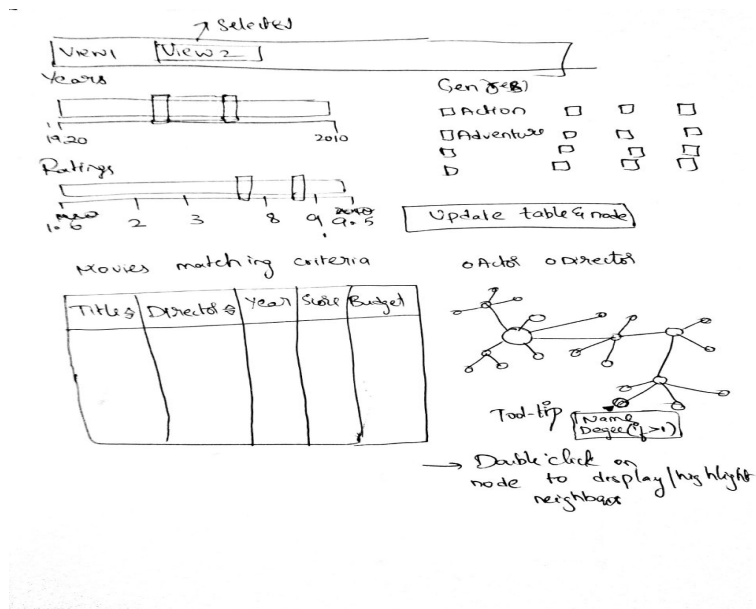 Selected
View1 View 2
Years
Genres
Action
Adventure
19.20 2010
Ratings
1.6 2 3 8 9 9.5
Update table & node
Movies matching criteria
Actor Director
Title Director Year Score Budget
Tool-tip
Name
Degree (if >1)
→ Double click on
node to display/highlight
neighbors